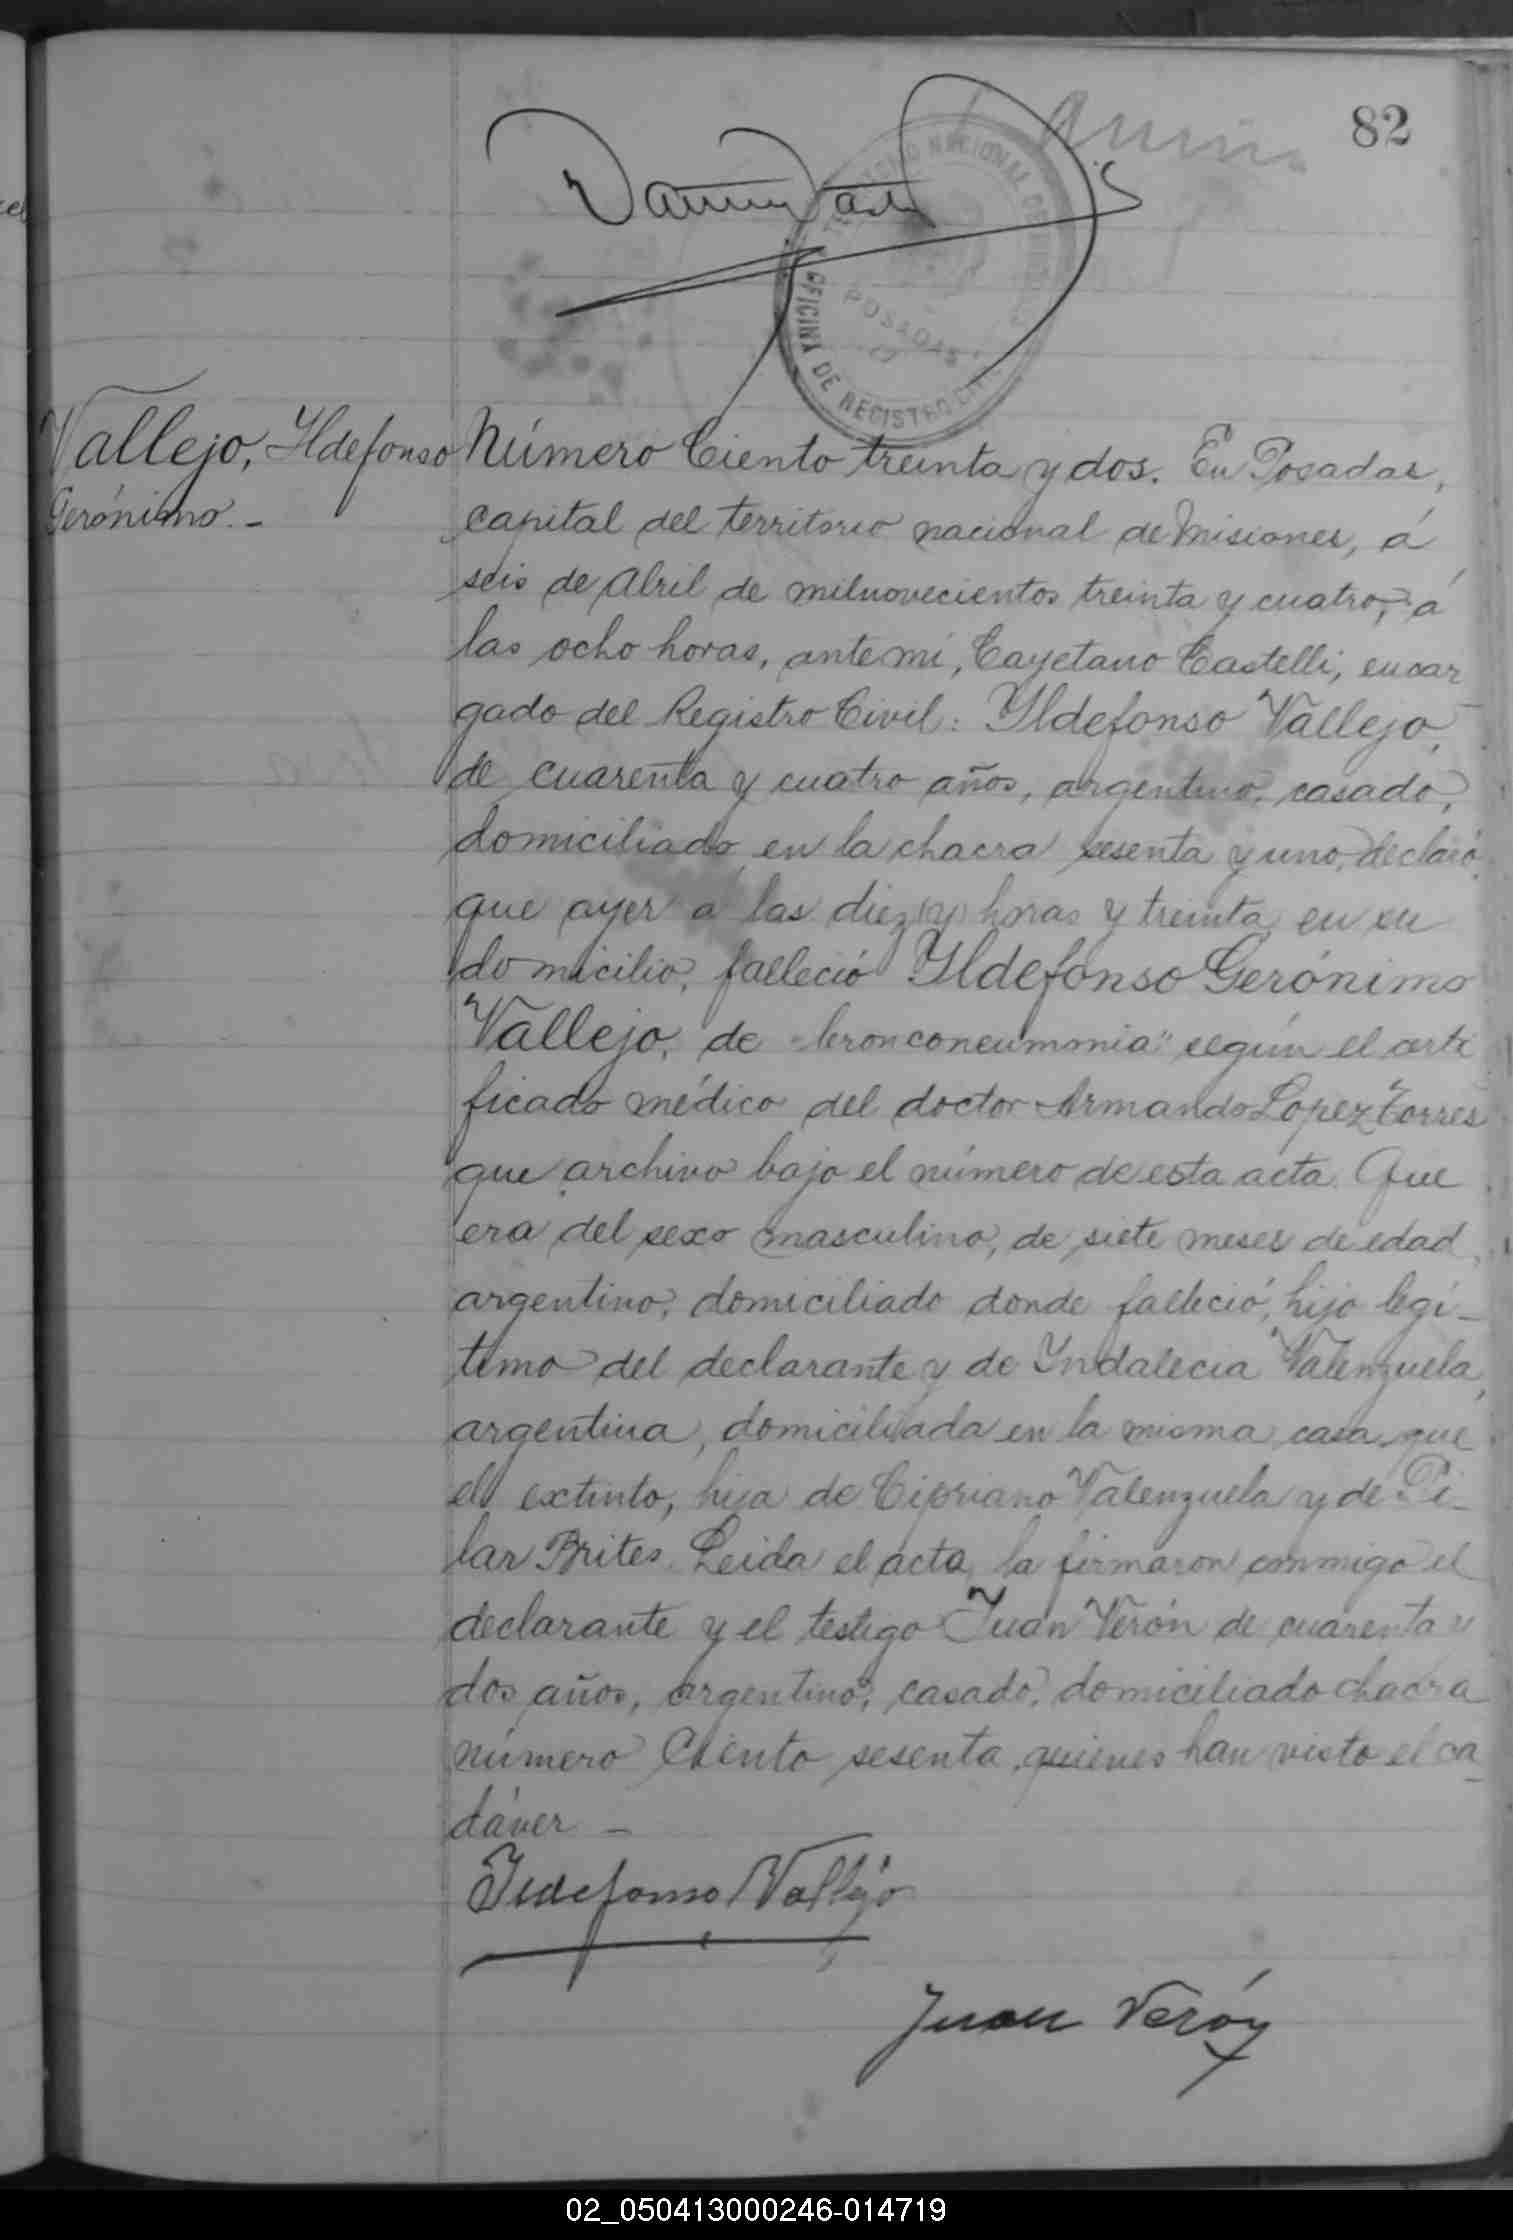 82
TERRITORIO NACIONAL DE MISIONES
POSADAS
OFICINA DE REGISTRO CIVIL
Vallejo, Yldefonso
Gerónimo. -
Número Ciento treinta y dos. En Posadas,
capital del territorio nacional de Misiones, á
seis de Abril de milnovecientos treinta y cuatro, á
las ocho horas, ante mi, Cayetano Castelli, encar
gado del Registro Civil: Yldefonso Vallejo,
de cuarenta y cuatro años, argentino, casado,
domiciliado en la chacra sesenta y uno, declaró:
que ayer a las diez (y) horas y treinta, en su
domicilio, falleció Yldefonso Gerónimo
Vallejo, de "bronconeumonia" según el certi
ficado médico del doctor Armando Lopez Torres
que archivo bajo el número de esta acta. Que
era del sexo masculino, de siete meses de edad,
argentino, domiciliado donde falleció, hijo legi-
timo del declarante y de Yndalecia Valenzuela,
argentina, domiciliada en la misma casa que
el extinto, hija de Cipriano Valenzuela y de Pi-
lar Brites. Leida el acta, la firmaron conmigo el
declarante y el testigo Juan Verón de cuarenta y
dos años, argentino, casado, domiciliado chacra
número Ciento sesenta, quienes han visto el ca-
dáver -
Ildefonso Vallejo
Juan Verón
02_050413000246-014719